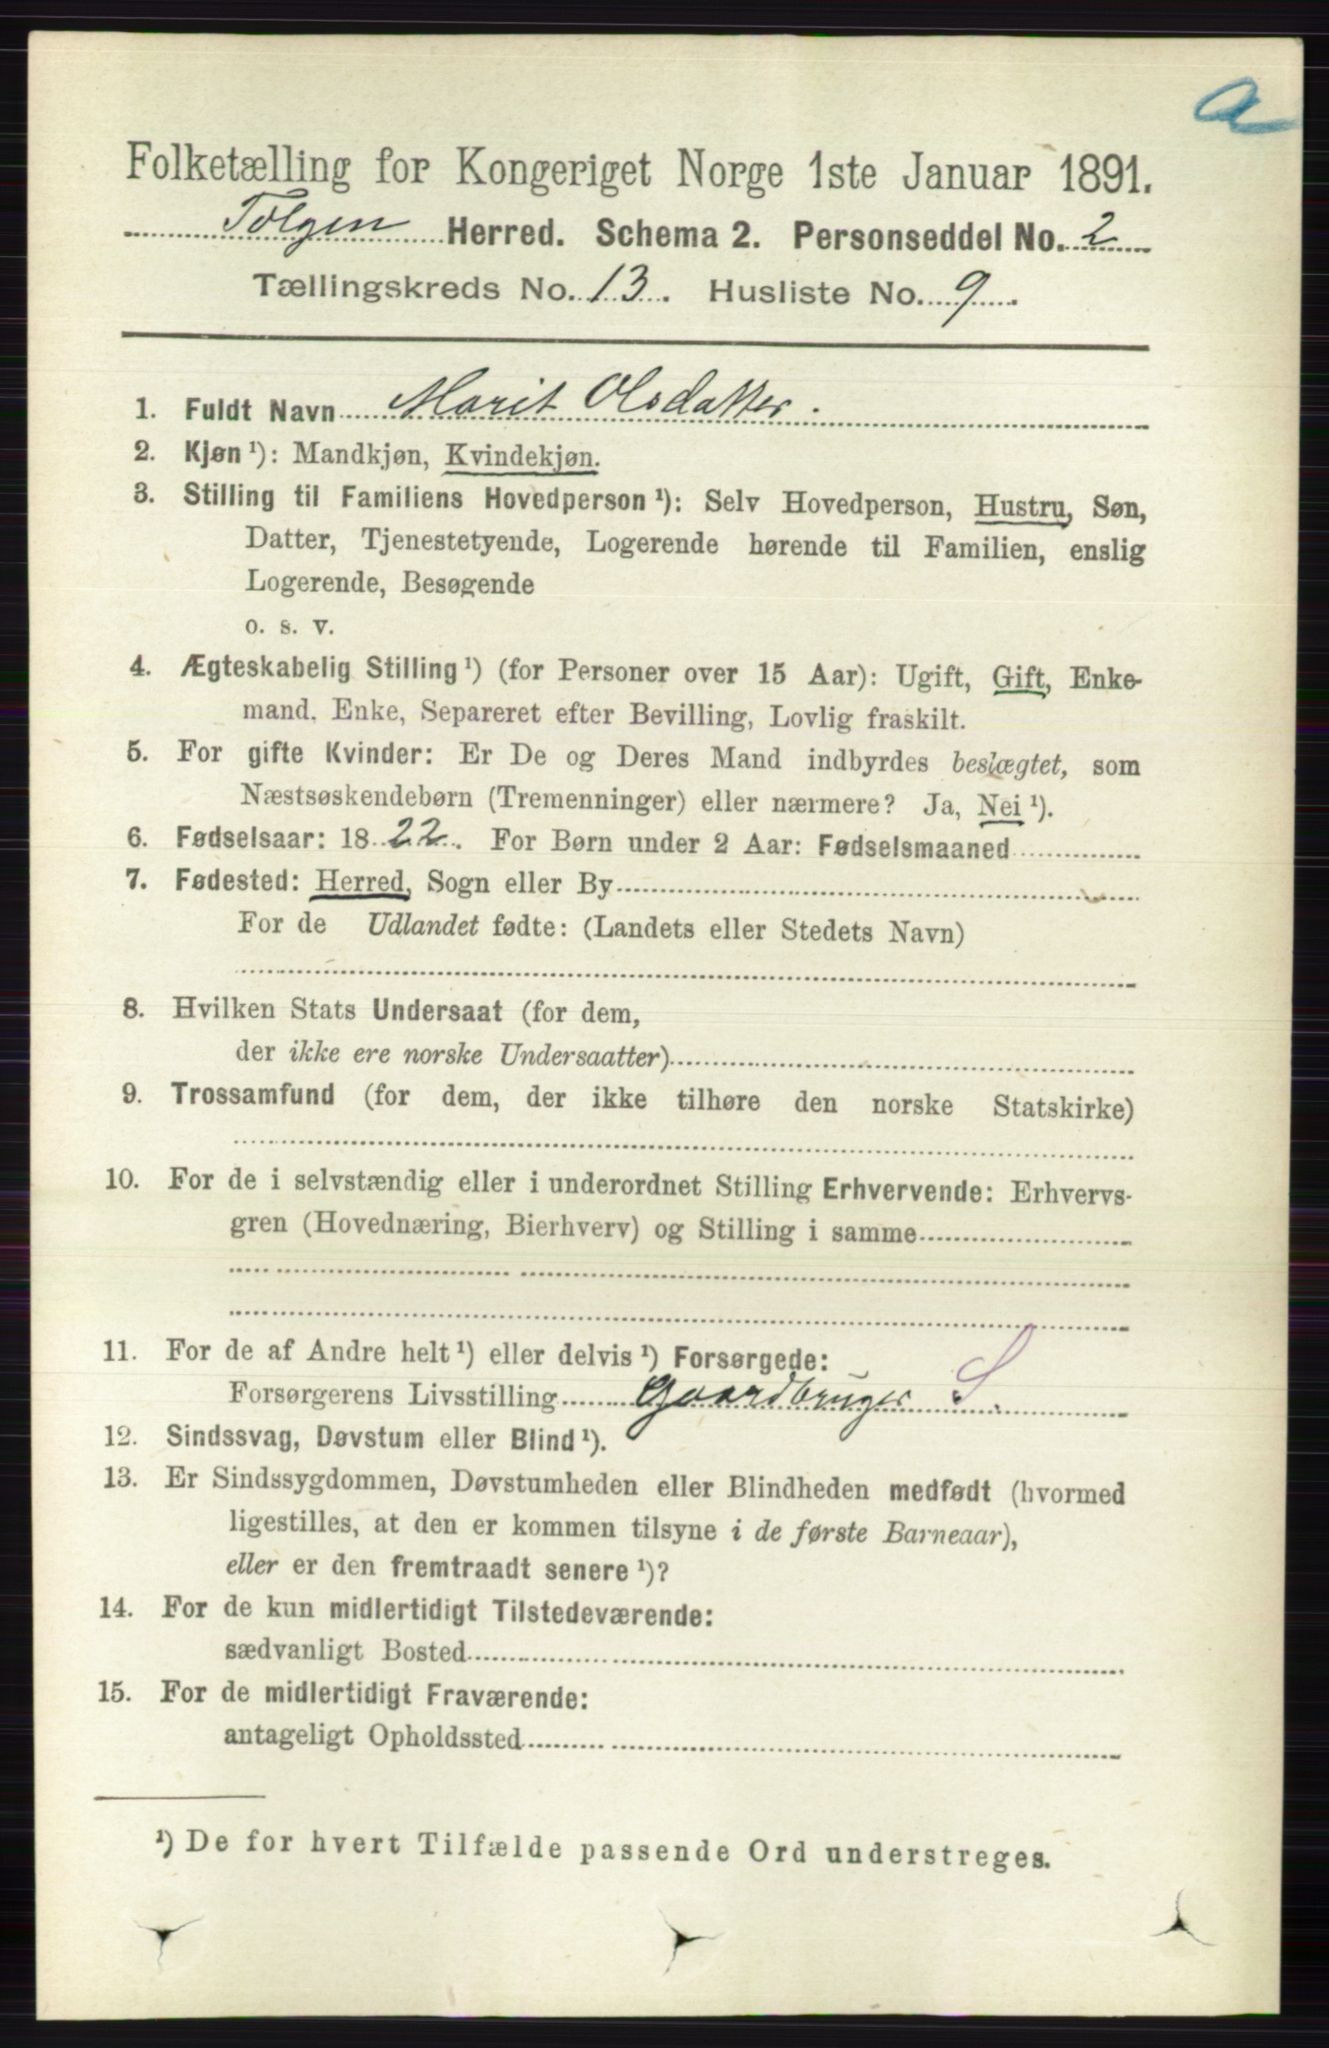 a
Folketælling for Kongeriget Norge 1ste Januar 1891.
Tolgen Herred. Schema 2. Personseddel No. 2
Tællingskreds No. 13. Husliste No. 9.
1. Fuldt Navn Marit Olsdatter.
2. Kjøn ¹): Mandkjøn, Kvindekjøn.
3. Stilling til Familiens Hovedperson ¹): Selv Hovedperson, Hustru, Søn,
Datter, Tjenestetyende, Logerende hørende til Familien, enslig
Logerende, Besøgende
o. s. v.
4. Ægteskabelig Stilling ¹) (for Personer over 15 Aar): Ugift, Gift, Enke-
mand, Enke, Separeret efter Bevilling, Lovlig fraskilt.
5. For gifte Kvinder: Er De og Deres Mand indbyrdes beslægtet, som
Næstsøskendebørn (Tremenninger) eller nærmere? Ja, Nei ¹).
6. Fødselsaar: 1822. For Børn under 2 Aar: Fødselsmaaned
7. Fødested: Herred, Sogn eller By
For de Udlandet fødte: (Landets eller Stedets Navn)
8. Hvilken Stats Undersaat (for dem,
der ikke ere norske Undersaatter)
9. Trossamfund (for dem, der ikke tilhøre den norske Statskirke)
10. For de i selvstændig eller i underordnet Stilling Erhvervende: Erhvervs-
gren (Hovednæring, Bierhverv) og Stilling i samme
11. For de af Andre helt ¹) eller delvis ¹) Forsørgede:
Forsørgerens Livsstilling Gaardbruger S.
12. Sindssvag, Døvstum eller Blind ¹).
13. Er Sindssygdommen, Døvstumheden eller Blindheden medfødt (hvormed
ligestilles, at den er kommen tilsyne i de første Barneaar),
eller er den fremtraadt senere ¹)?
14. For de kun midlertidigt Tilstedeværende:
sædvanligt Bosted
15. For de midlertidigt Fraværende:
antageligt Opholdssted
¹) De for hvert Tilfælde passende Ord understreges.